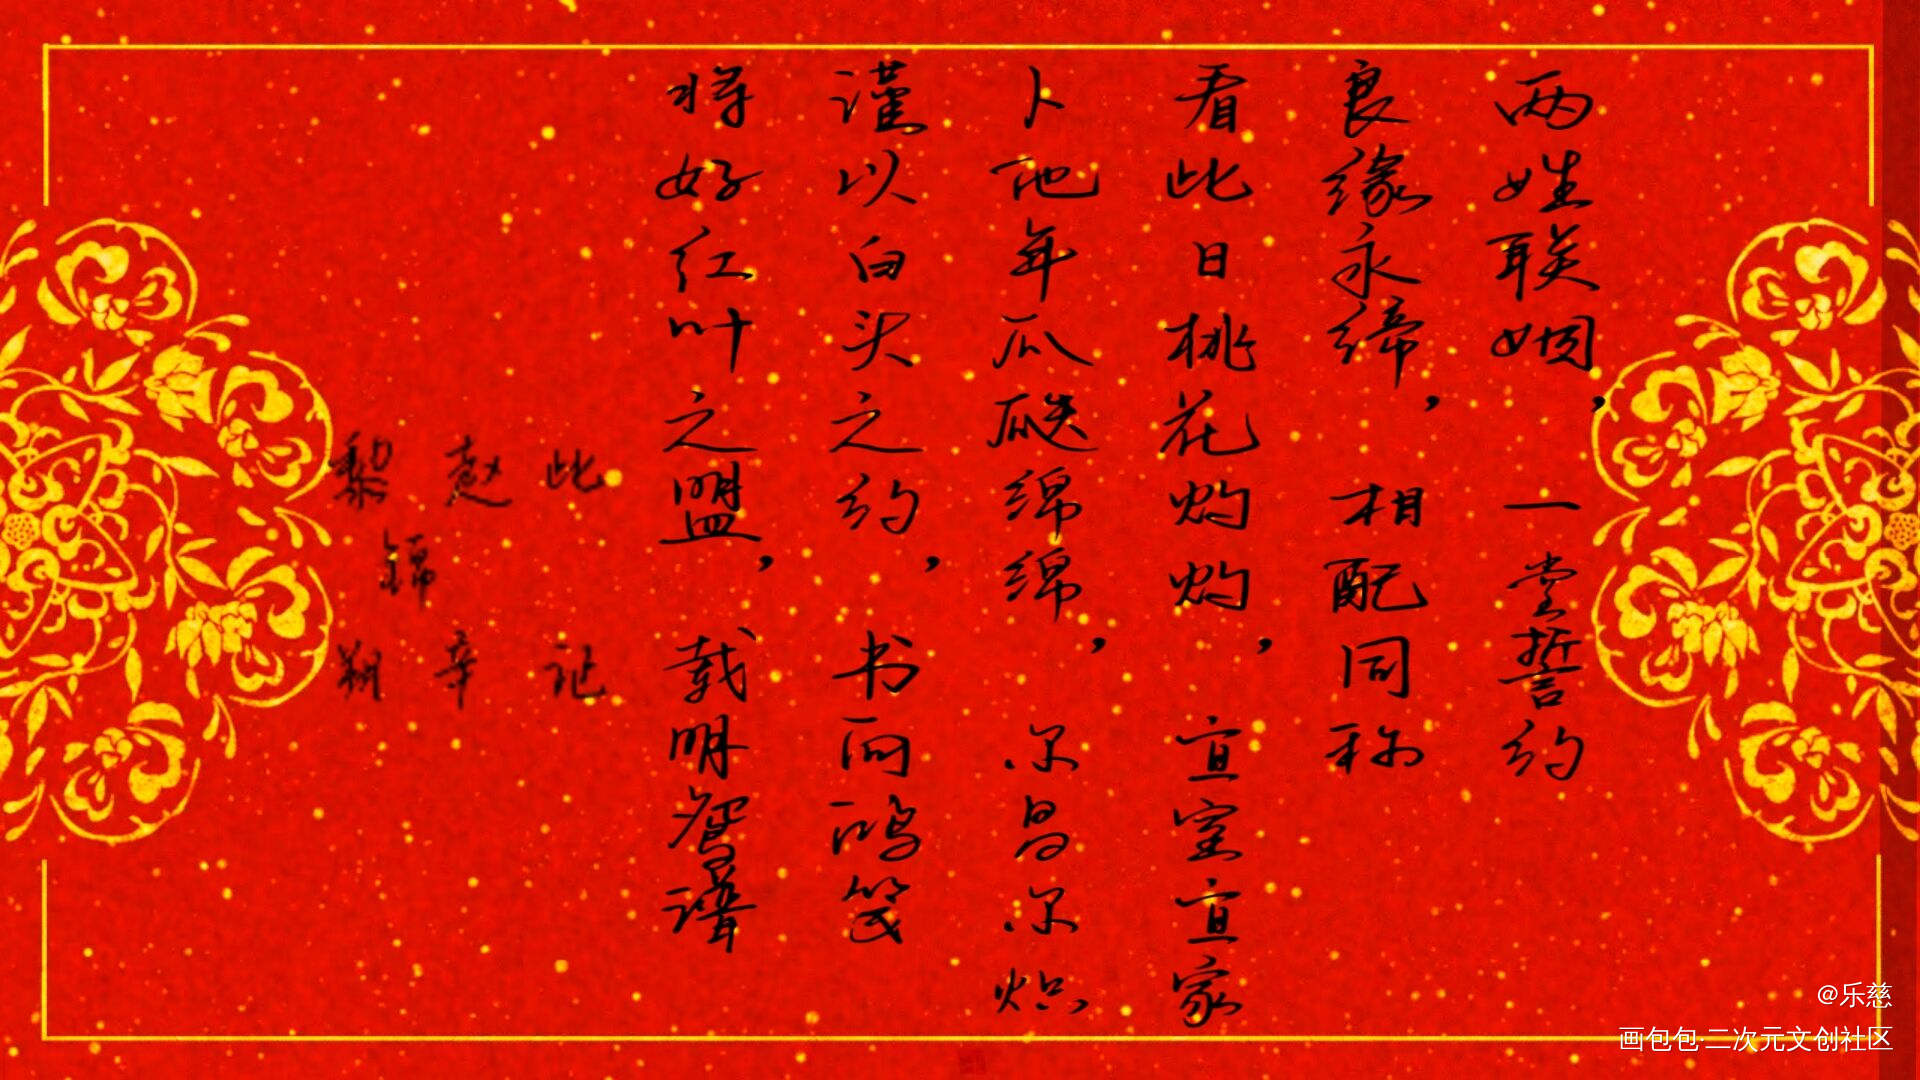 两姓联姻，一堂誓约
良缘永缔，相配同称
看此日桃花灼灼，宜室宜家
卜他年瓜瓞绵绵，尔昌尔炽
谨以白头之约，书向鸿笺
将好红叶之盟，载明鸳谱
此记
赵辛
黎锦翔
@乐慈
画包包·二次元文创社区